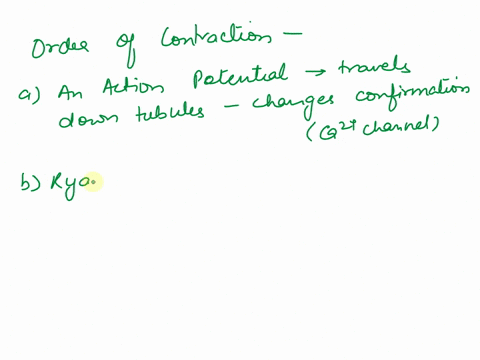 Order of Contraction —
a) An Action Potential → travels
down tubules – changes confirmation
(Ca²⁺ channel)
b) Rya